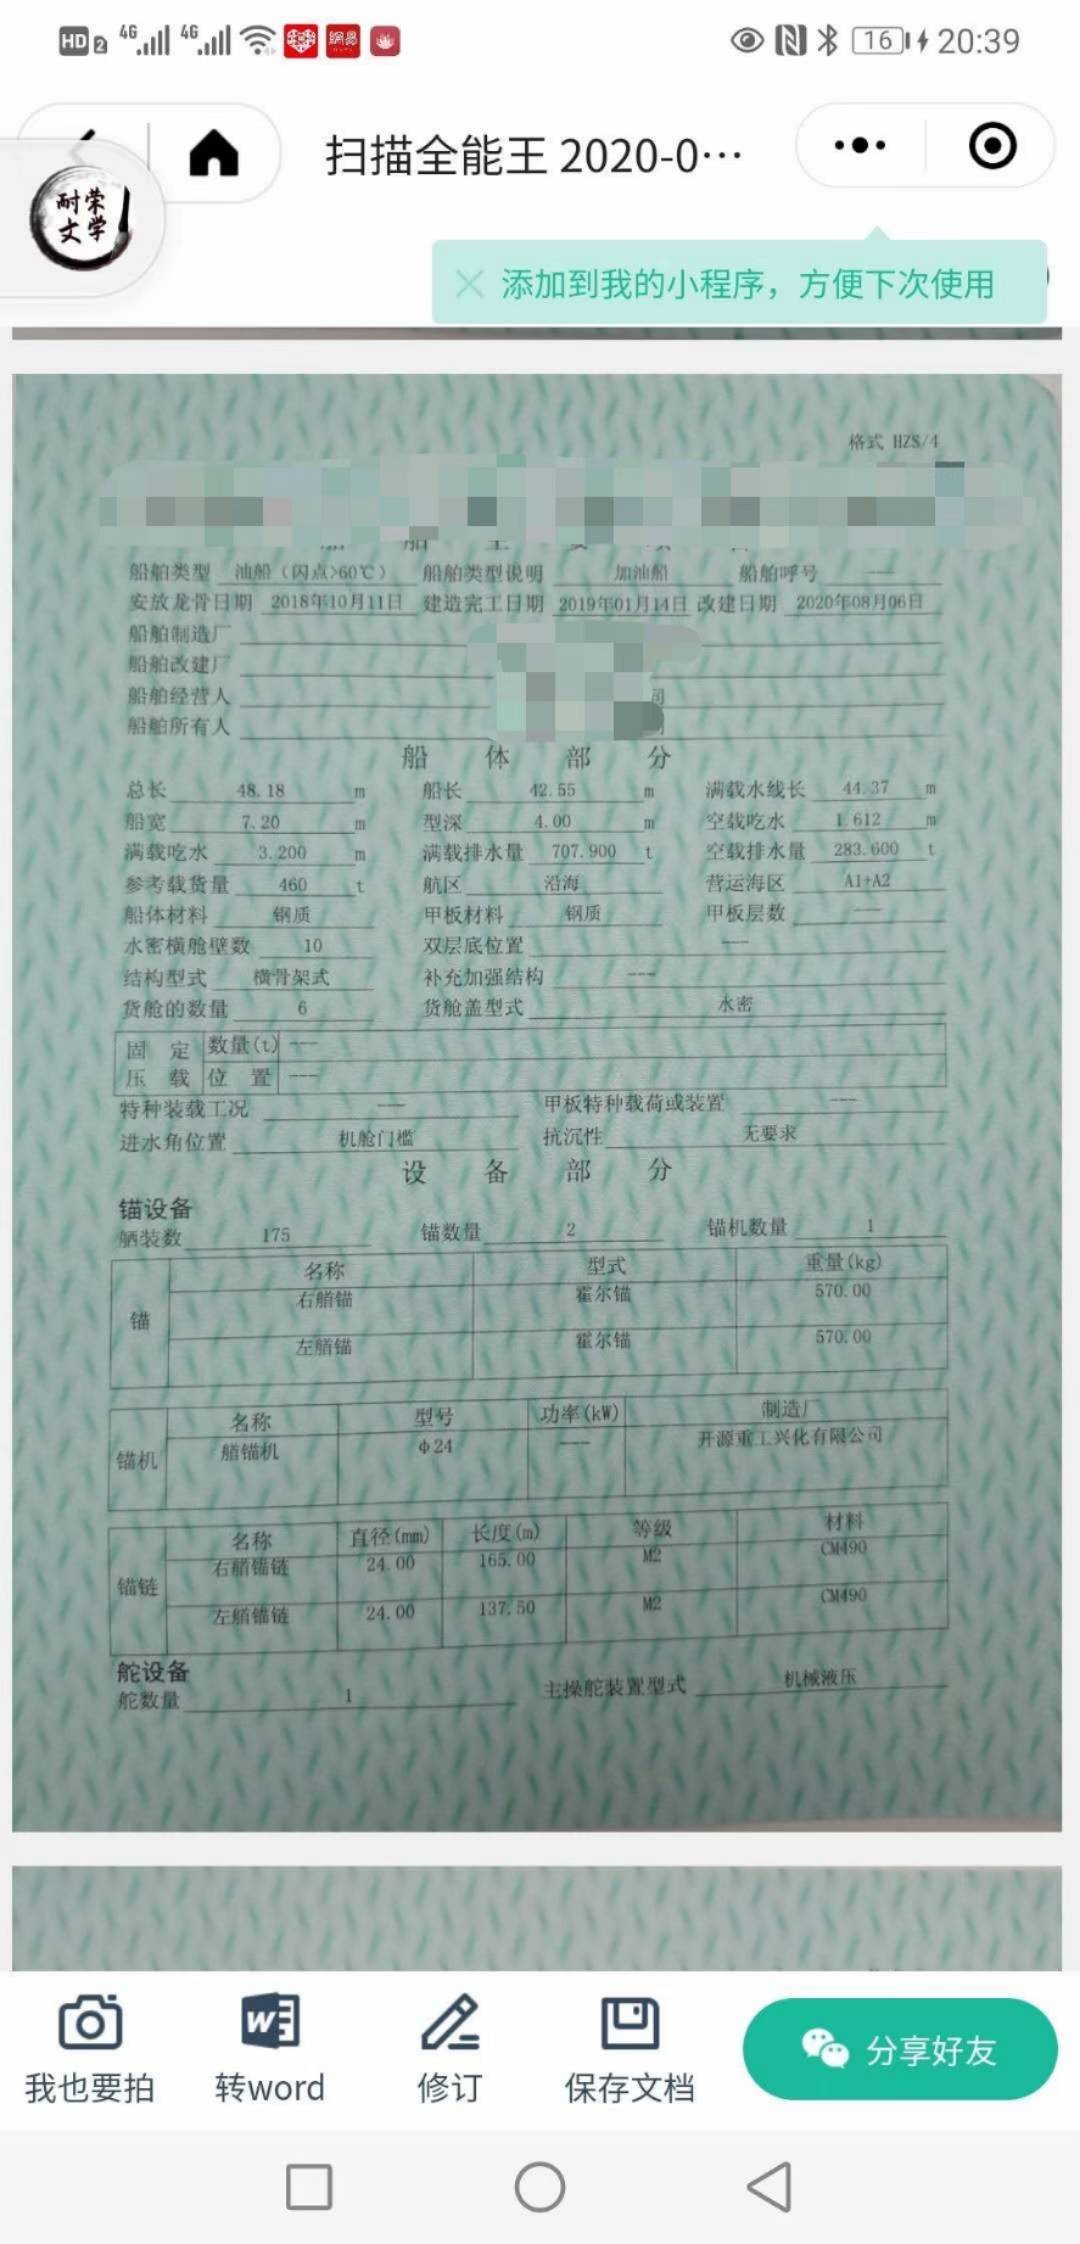 HD 2 4G 4G 16 20:39
扫描全能王 2020-0…
耐荣
文学
添加到我的小程序，方便下次使用
格式 HZS/4
船舶类型 油船（闪点>60℃） 船舶类型说明 加油船 船舶呼号 ---
安放龙骨日期 2018年10月11日 建造完工日期 2019年01月14日 改建日期 2020年08月06日
船舶制造厂
船舶改建厂
船舶经营人 司
船舶所有人
船 体 部 分
总长 48.18 m 船长 42.55 m 满载水线长 44.37 m
船宽 7.20 m 型深 4.00 m 空载吃水 1.612 m
满载吃水 3.200 m 满载排水量 707.900 t 空载排水量 283.600 t
参考载货量 460 t 航区 沿海 营运海区 A1+A2
船体材料 钢质 甲板材料 钢质 甲板层数 ---
水密横舱壁数 10 双层底位置 ---
结构型式 横骨架式 补充加强结构 ---
货舱的数量 6 货舱盖型式 水密
固 定 数量(t) ---
压 载 位 置 ---
特种装载工况 --- 甲板特种载荷或装置 ---
进水角位置 机舱门槛 抗沉性 无要求
设 备 部 分
锚设备
舾装数 175 锚数量 2 锚机数量 1
名称 型式 重量(kg)
锚 右艏锚 霍尔锚 570.00
左艏锚 霍尔锚 570.00
名称 型号 功率(kW) 制造厂
锚机 艏锚机 φ24 --- 开源重工兴化有限公司
名称 直径(mm) 长度(m) 等级 材料
锚链 右艏锚链 24.00 165.00 M2 CM490
左艏锚链 24.00 137.50 M2 CM490
舵设备
舵数量 1 主操舵装置型式 机械液压
我也要拍 转word 修订 保存文档 分享好友